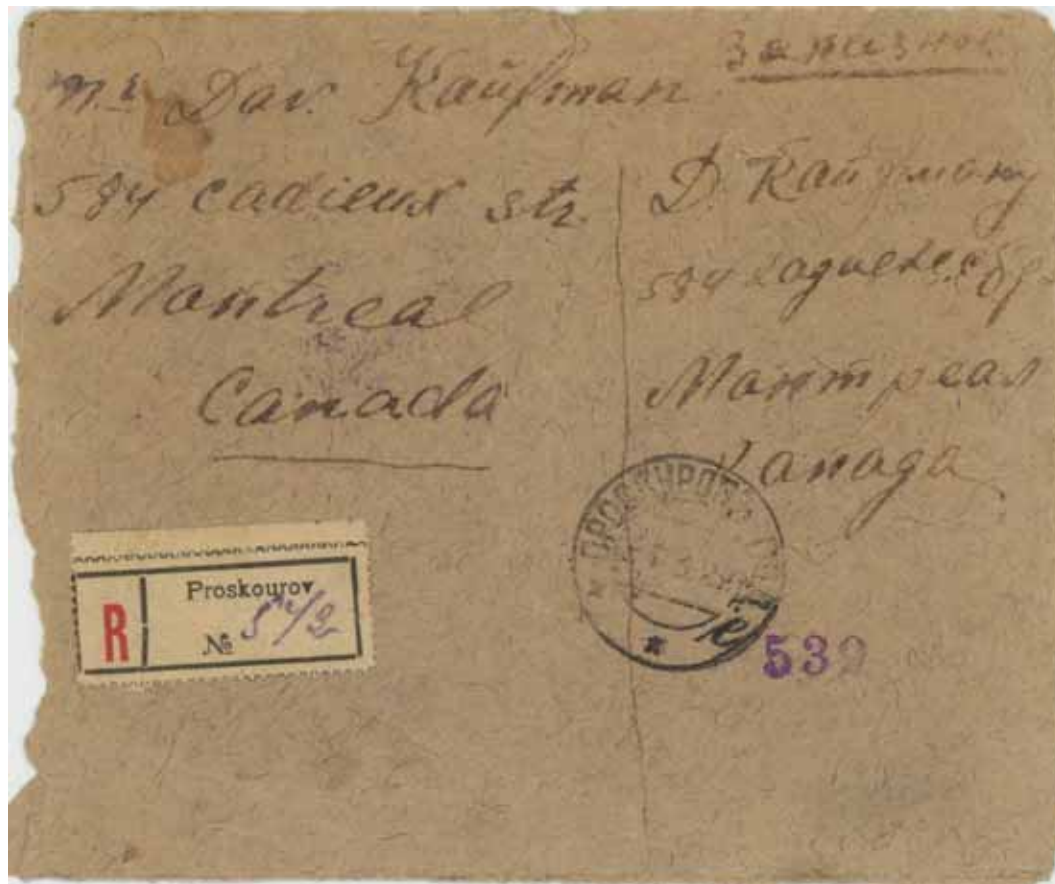 Заказное
Mr Dav. Kaufman
584 cadieux str.
Montreal
Canada
Д. Кауфману
584
Монтреал
Канада
R
Proskourov
№
ПРОСКУРОВ
539